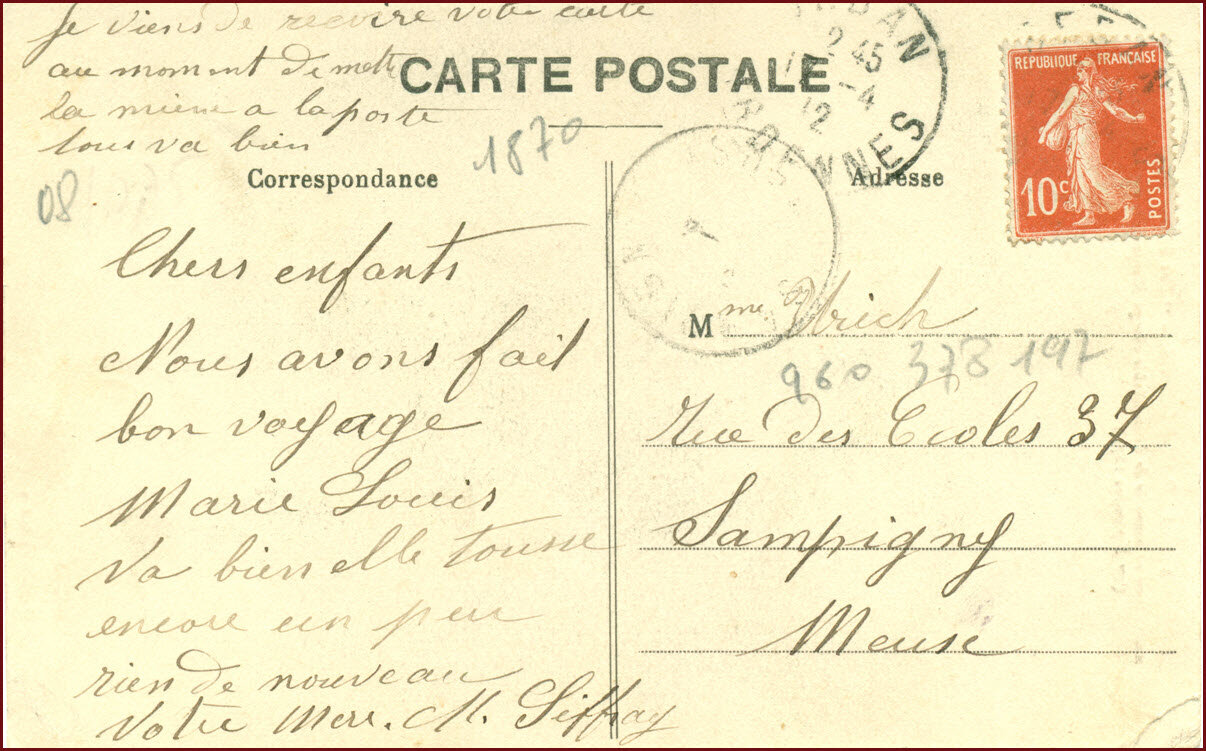 je viens de recvire votre carte
au moment de mettre
la miene a la poste
tous va bien
CARTE POSTALE
DAN
12 45
1 -4
12
ARDENNES
RÉPUBLIQUE FRANÇAISE
10c
POSTES
1870
08
Correspondance
Adresse
Chers enfants
Nous avons fait
bon voyage
Marie Louis
va bien elle tousse
encore un peu
rien de nouveau
votre Mere. M.
Mme. Ulrich
960 378 197
Rue des Ecoles 37
Sampigny
Meuse